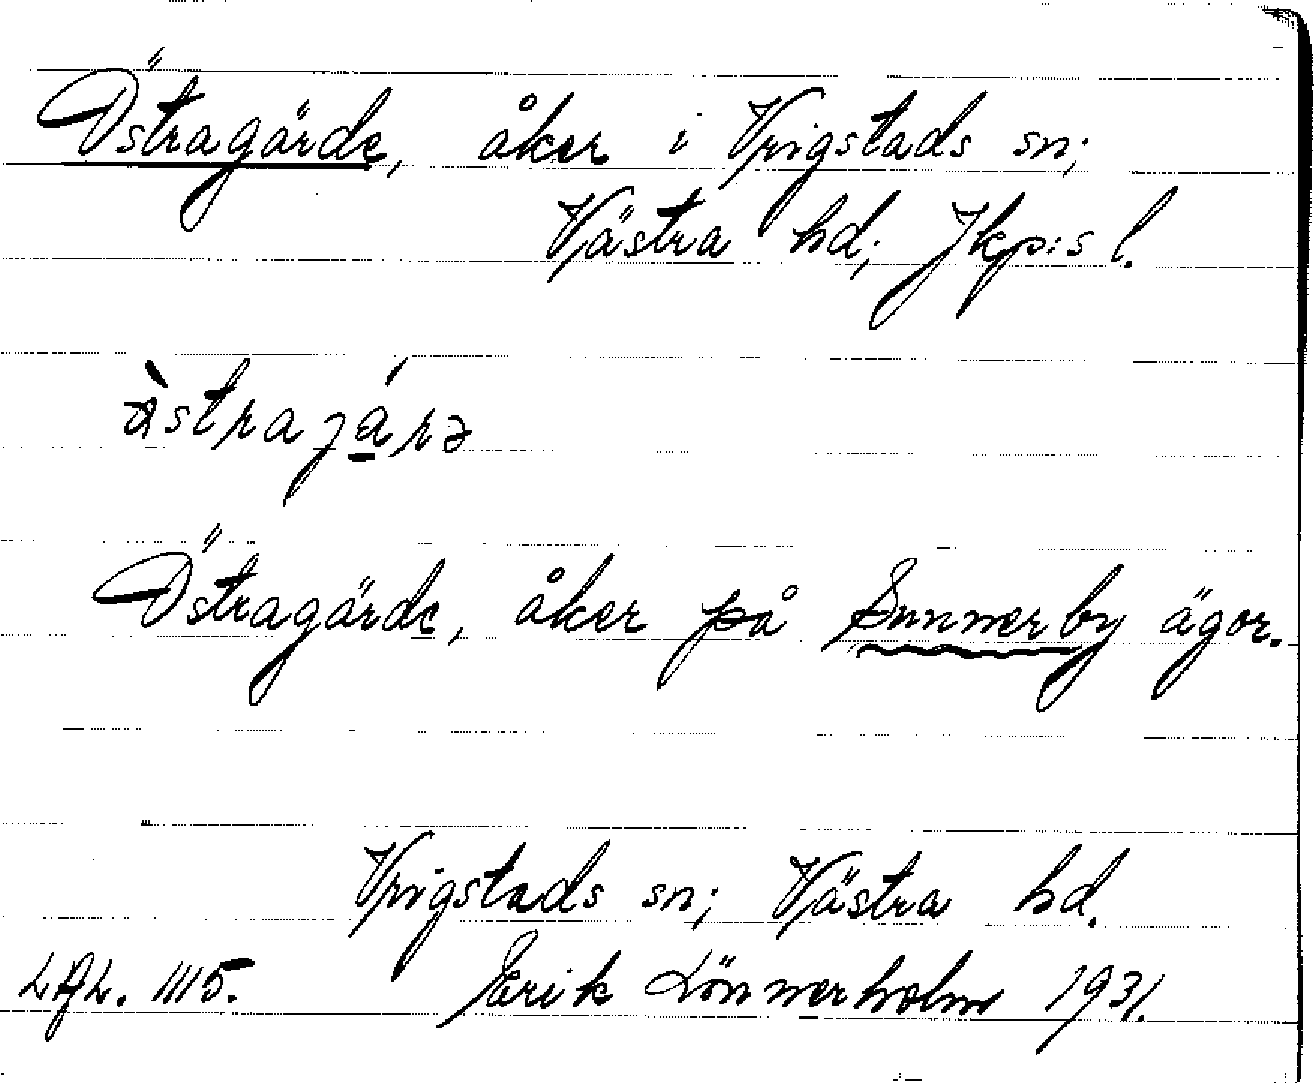 Östragärde, åker i Vrigstads sn;
Västra hd; Jkp:s l.
Östragärde, åker på Sunnerby ägor.
Vrigstads sn; Västra hd.
1115. Erik Lönnerholm 1931.